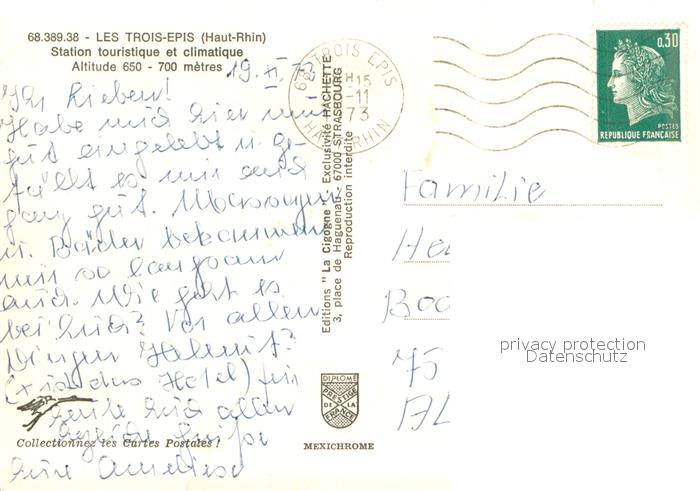 68.389.38 - LES TROIS-EPIS (Haut-Rhin)
Station touristique et climatique
Altitude 650 - 700 mètres
19. XI. 73
Ihr Lieben!
Habe mich hier nun
gut eingelebt u. ge-
fällt es mir auch
ganz gut. Massagen
u. Bäder bekommen
mir so langsam
auch. Wie geht es
bei Euch? Vor allem
Dingen Helmut?
(x ist das Hotel) für
heute Euch allen
herzliche Grüße
Eure Anneliese
Collectionnez les Cartes Postales !
Editions " La Cigogne " - Exclusivité HACHETTE
3, place de Haguenau - 67000 STRASBOURG
Reproduction interdite
DIPLOME
PRESTIGE
DE LA
FRANCE
MEXICHROME
68 TROIS EPIS
H 15
-11
73
HAUT RHIN
0,30
POSTES
REPUBLIQUE FRANÇAISE
Familie
He
Boo
75
AL
privacy protection
Datenschutz